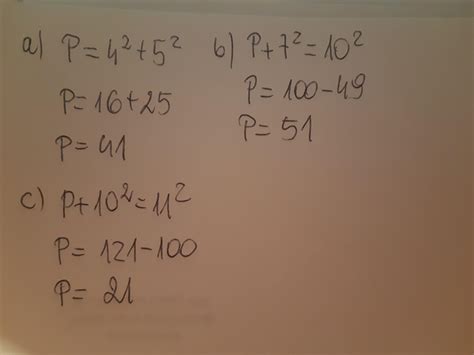 a) P=4²+5²
P=16+25
P=41
b) P+7²=10²
P=100-49
P=51
c) P+10²=11²
P=121-100
P=21